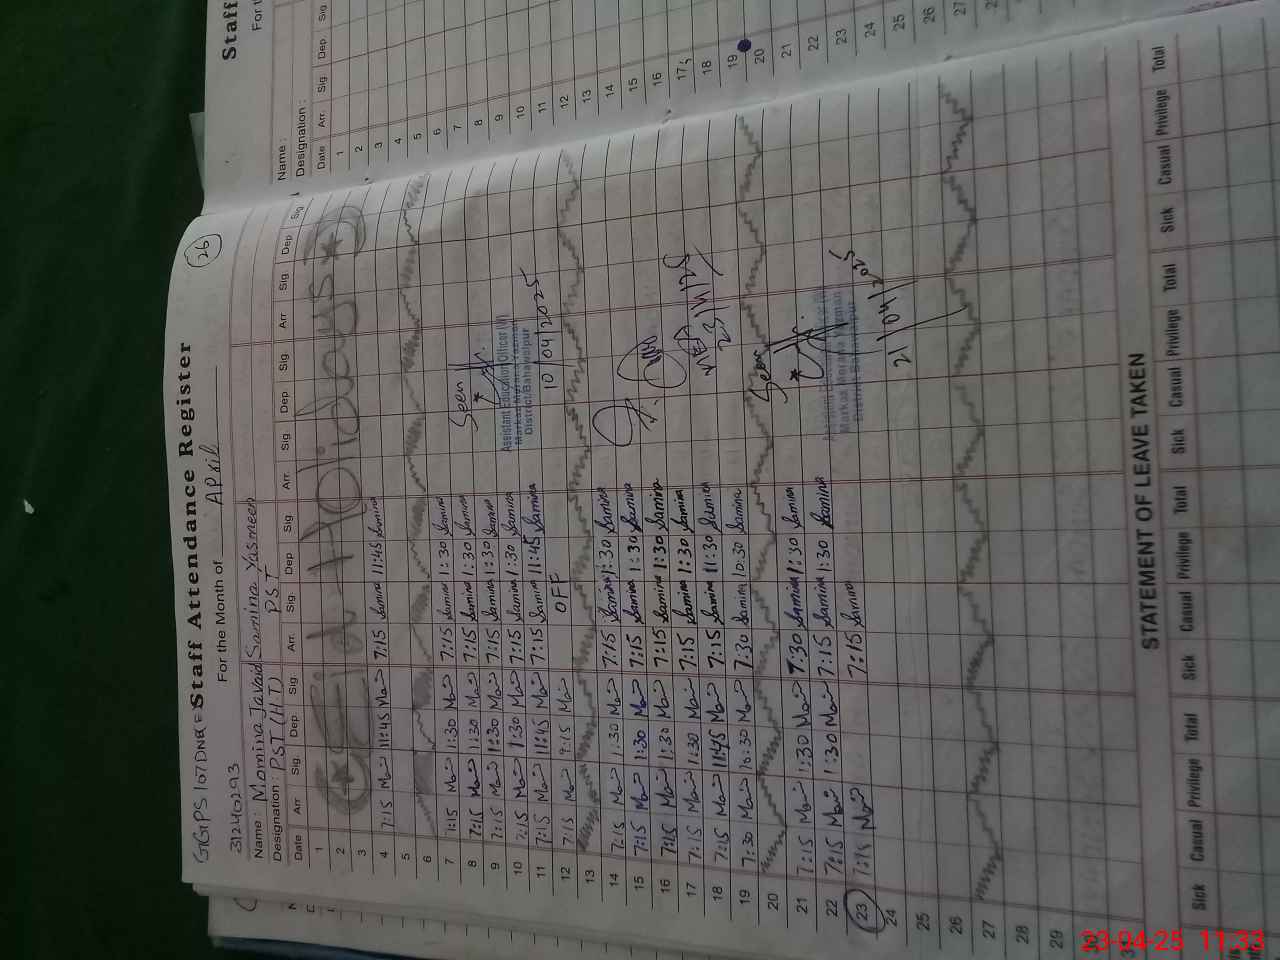 26
GGPS 107DNB = Staff Attendance Register
31240293 For the Month of April
Name: Momina Javaid Samina Yasmeen
Designation: PST (HT) PST
Date Arr Sig Dep Sig Arr Sig Dep Sig Arr Sig Dep Sig Arr Sig Dep Sig
1
2 Eid Holidays
3
4 7:15 11:45 7:15 Samina 11:45 Samina
5
6
7 7:15 1:30 7:15 Samina 1:30 Samina
8 7:15 1:30 7:15 Samina 1:30 Samina
9 7:15 1:30 7:15 Samina 1:30 Samina
10 7:15 1:30 7:15 Samina 1:30 Samina
11 7:15 11:45 7:15 Samina 11:45 Samina
12 7:15 9:15 OFF
13
14 7:15 1:30 7:15 Samina 1:30 Samina
15 7:15 1:30 7:15 Samina 1:30 Samina
16 7:15 1:30 7:15 Samina 1:30 Samina
17 7:15 1:30 7:15 Samina 1:30 Samina
18 7:15 11:45 7:15 Samina 11:30 Samina
19 7:30 10:30 7:30 Samina 10:30 Samina
20
21 7:15 1:30 7:30 Samina 1:30 Samina
22 7:15 1:30 7:15 Samina 1:30 Samina
23 7:15 7:15 Samina
24
25
26
27
28
29
Seen
Assistant Education Officer (W)
Markaz Merana Yazman
District Bahawalpur
10/04/2025
Seen
Markaz Merana Yazman
District Bahawalpur
21/04/2025
STATEMENT OF LEAVE TAKEN
Sick Casual Privilege Total Sick Casual Privilege Total Sick Casual Privilege Total Sick Casual Privilege Total
Staff
For t
Name:
Designation:
Date Arr. Sig Dep Sig
1
2
3
4
5
6
7
8
9
10
11
12
13
14
15
16
17
18
19
20
21
22
23
24
25
26
27
23-04-25 11:33